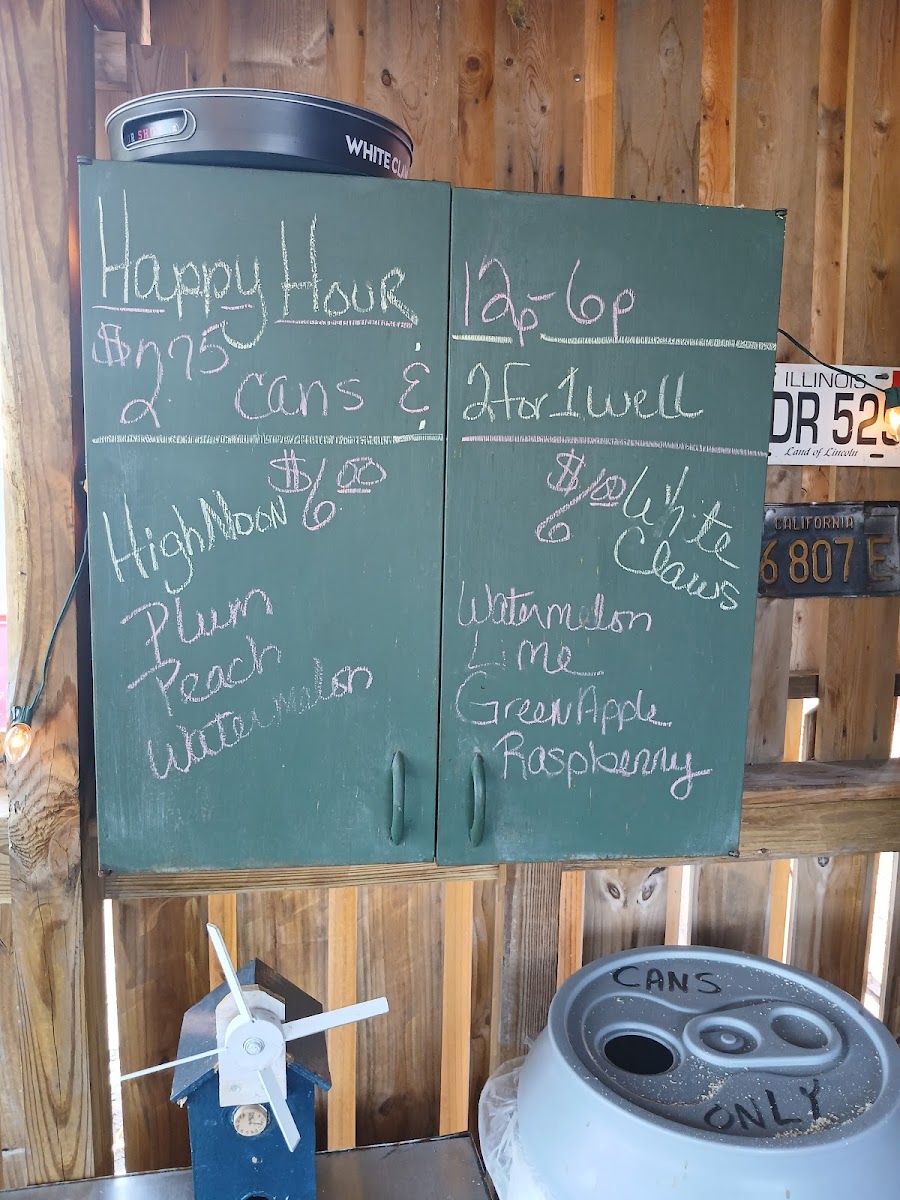 WHITE CLA
Happy Hour
$2.75 cans &
High Noon $6.00
Plum
Peach
Watermelon
12p-6p
2 for 1 well
$6.00 White
Claws
Watermelon
Lime
Green Apple
Raspberry
ILLINOIS
DR 525
Land of Lincoln
CALIFORNIA
6 807 E
CANS
ONLY